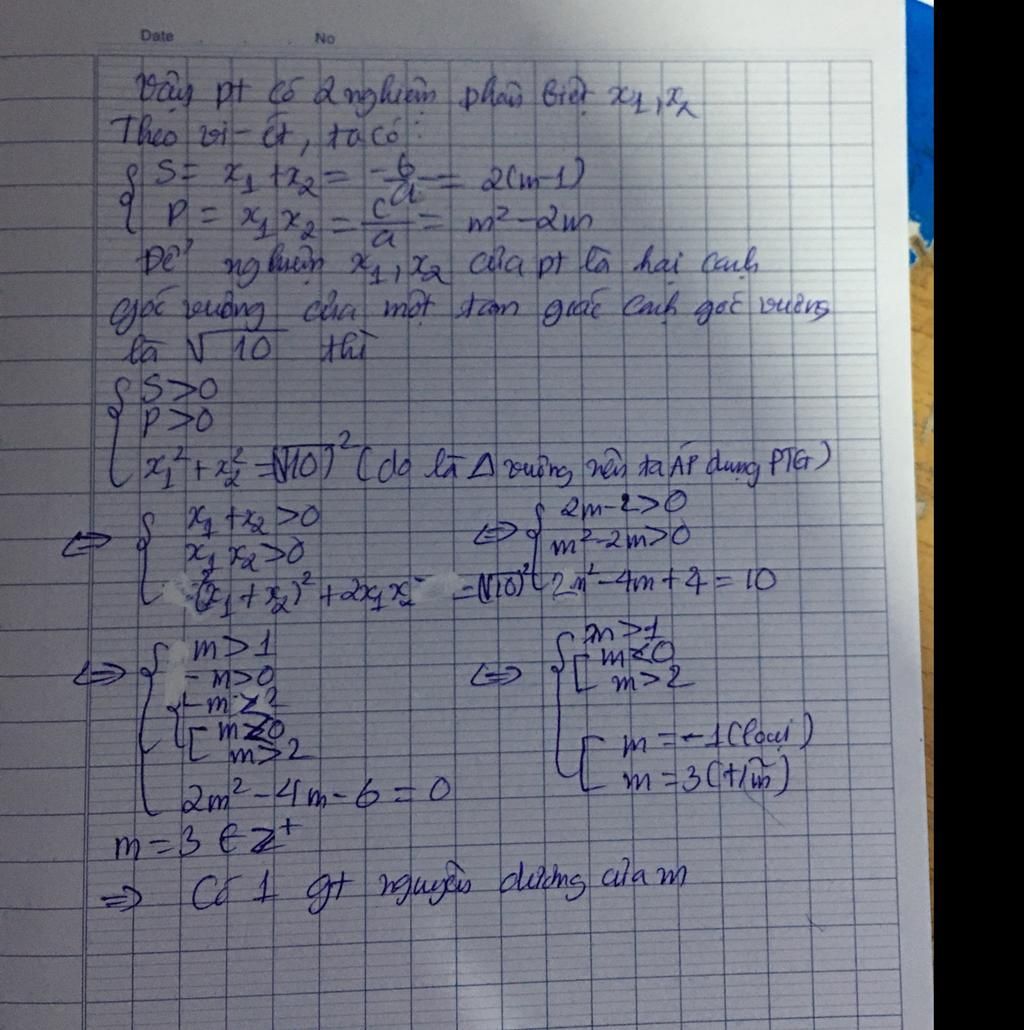 Date No
Vậy pt có 2 nghiệm phân biệt x₁, x₂
Theo vi-ét, ta có:
{ S = x₁ + x₂ = -b/a = 2(m-1)
P = x₁ x₂ = c/a = m² - 2m
Để nghiệm x₁, x₂ của pt là hai cạnh
góc vuông của một tam giác cạnh góc vuông
là √10 thì
{ S > 0
P > 0
x₁² + x₂² = (√10)² (do là Δ vuông nên ta ÁP dụng PTG)
⇔ { x₁ + x₂ > 0 ⇔ { 2m - 2 > 0
x₁ x₂ > 0 m² - 2m > 0
(x₁ + x₂)² + 2x₁x₂ = (√10)² 2m² - 4m + 4 = 10
⇔ { m > 1 ⇔ { m > 1
m > 0 [ m < 0
m > 2 m > 2
[ m < 0
m > 2 [ m = -1 (loại)
2m² - 4m - 6 = 0 m = 3 (t/m)
m = 3 ∈ Z⁺
⇒ Có 1 gt nguyên dương của m